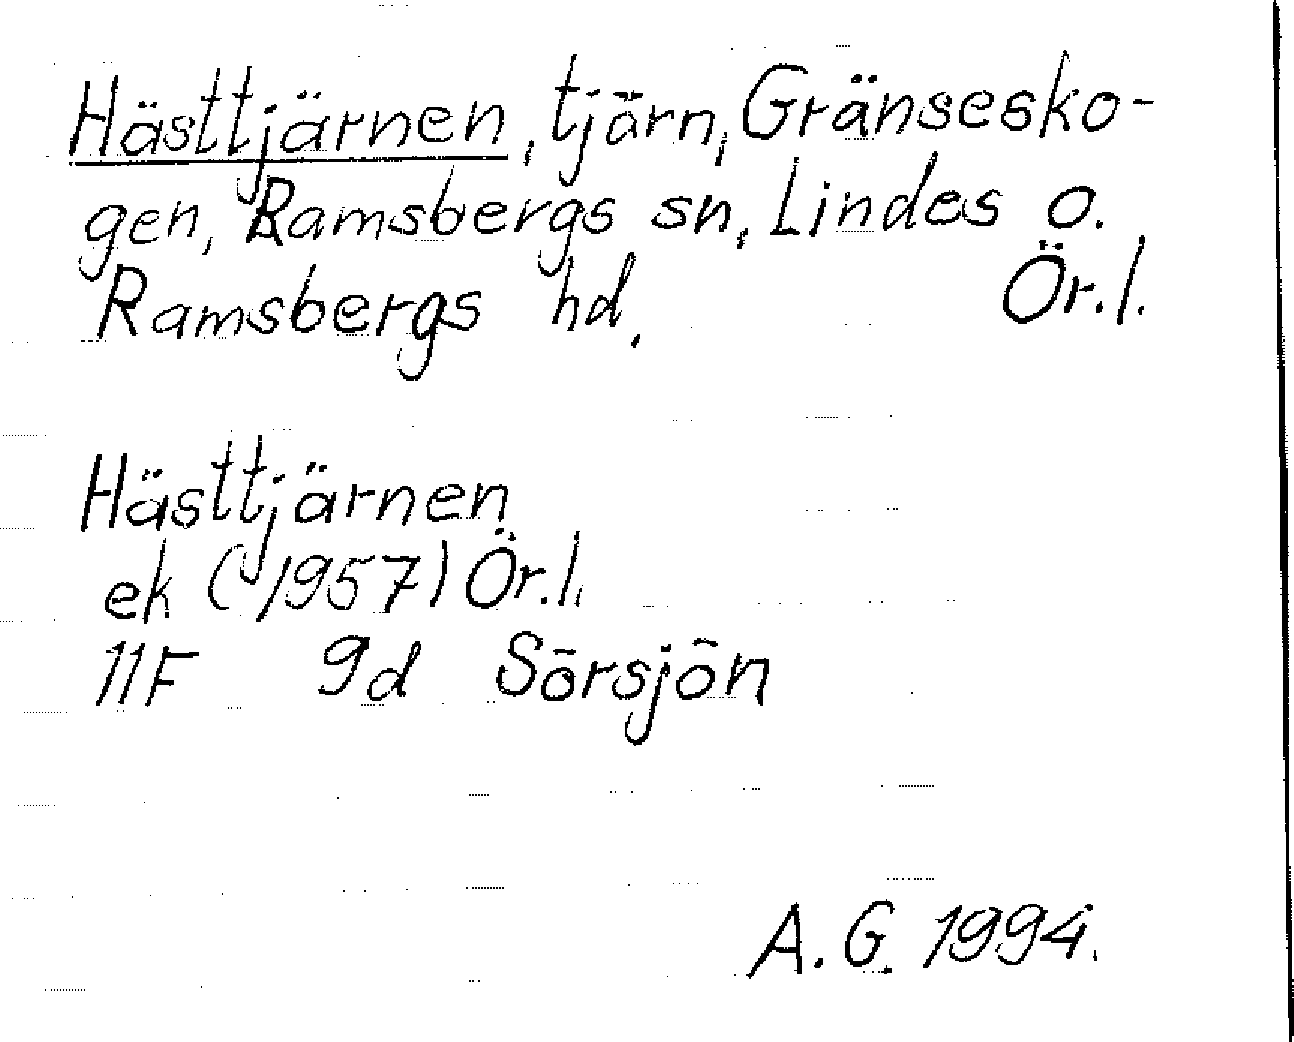 Hästtjärnen, tjärn, Gränsesko-
gen, Ramsbergs sn, Lindes o.
Ramsbergs hd. Ör.l.
Hästtjärnen
ek (1957) Ör.l.
11F 9d Sörsjön
A.G. 1994.